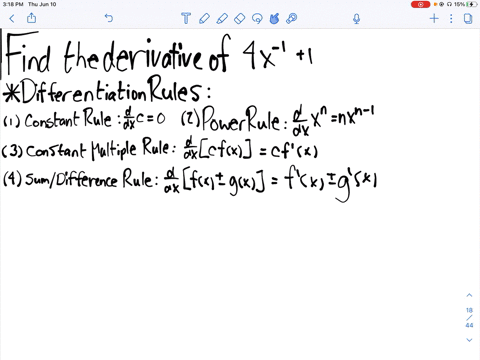 3:18 PM Thu Jun 10
15%
Find the derivative of 4x⁻¹ +1
*Differentiation Rules:
(1) Constant Rule: d/dx c=0 (2) Power Rule: d/dx xⁿ=nxⁿ⁻¹
(3) Constant Multiple Rule: d/dx [cf(x)] = cf'(x)
(4) Sum/Difference Rule: d/dx [f(x) ± g(x)] = f'(x) ± g'(x)
18
/
44